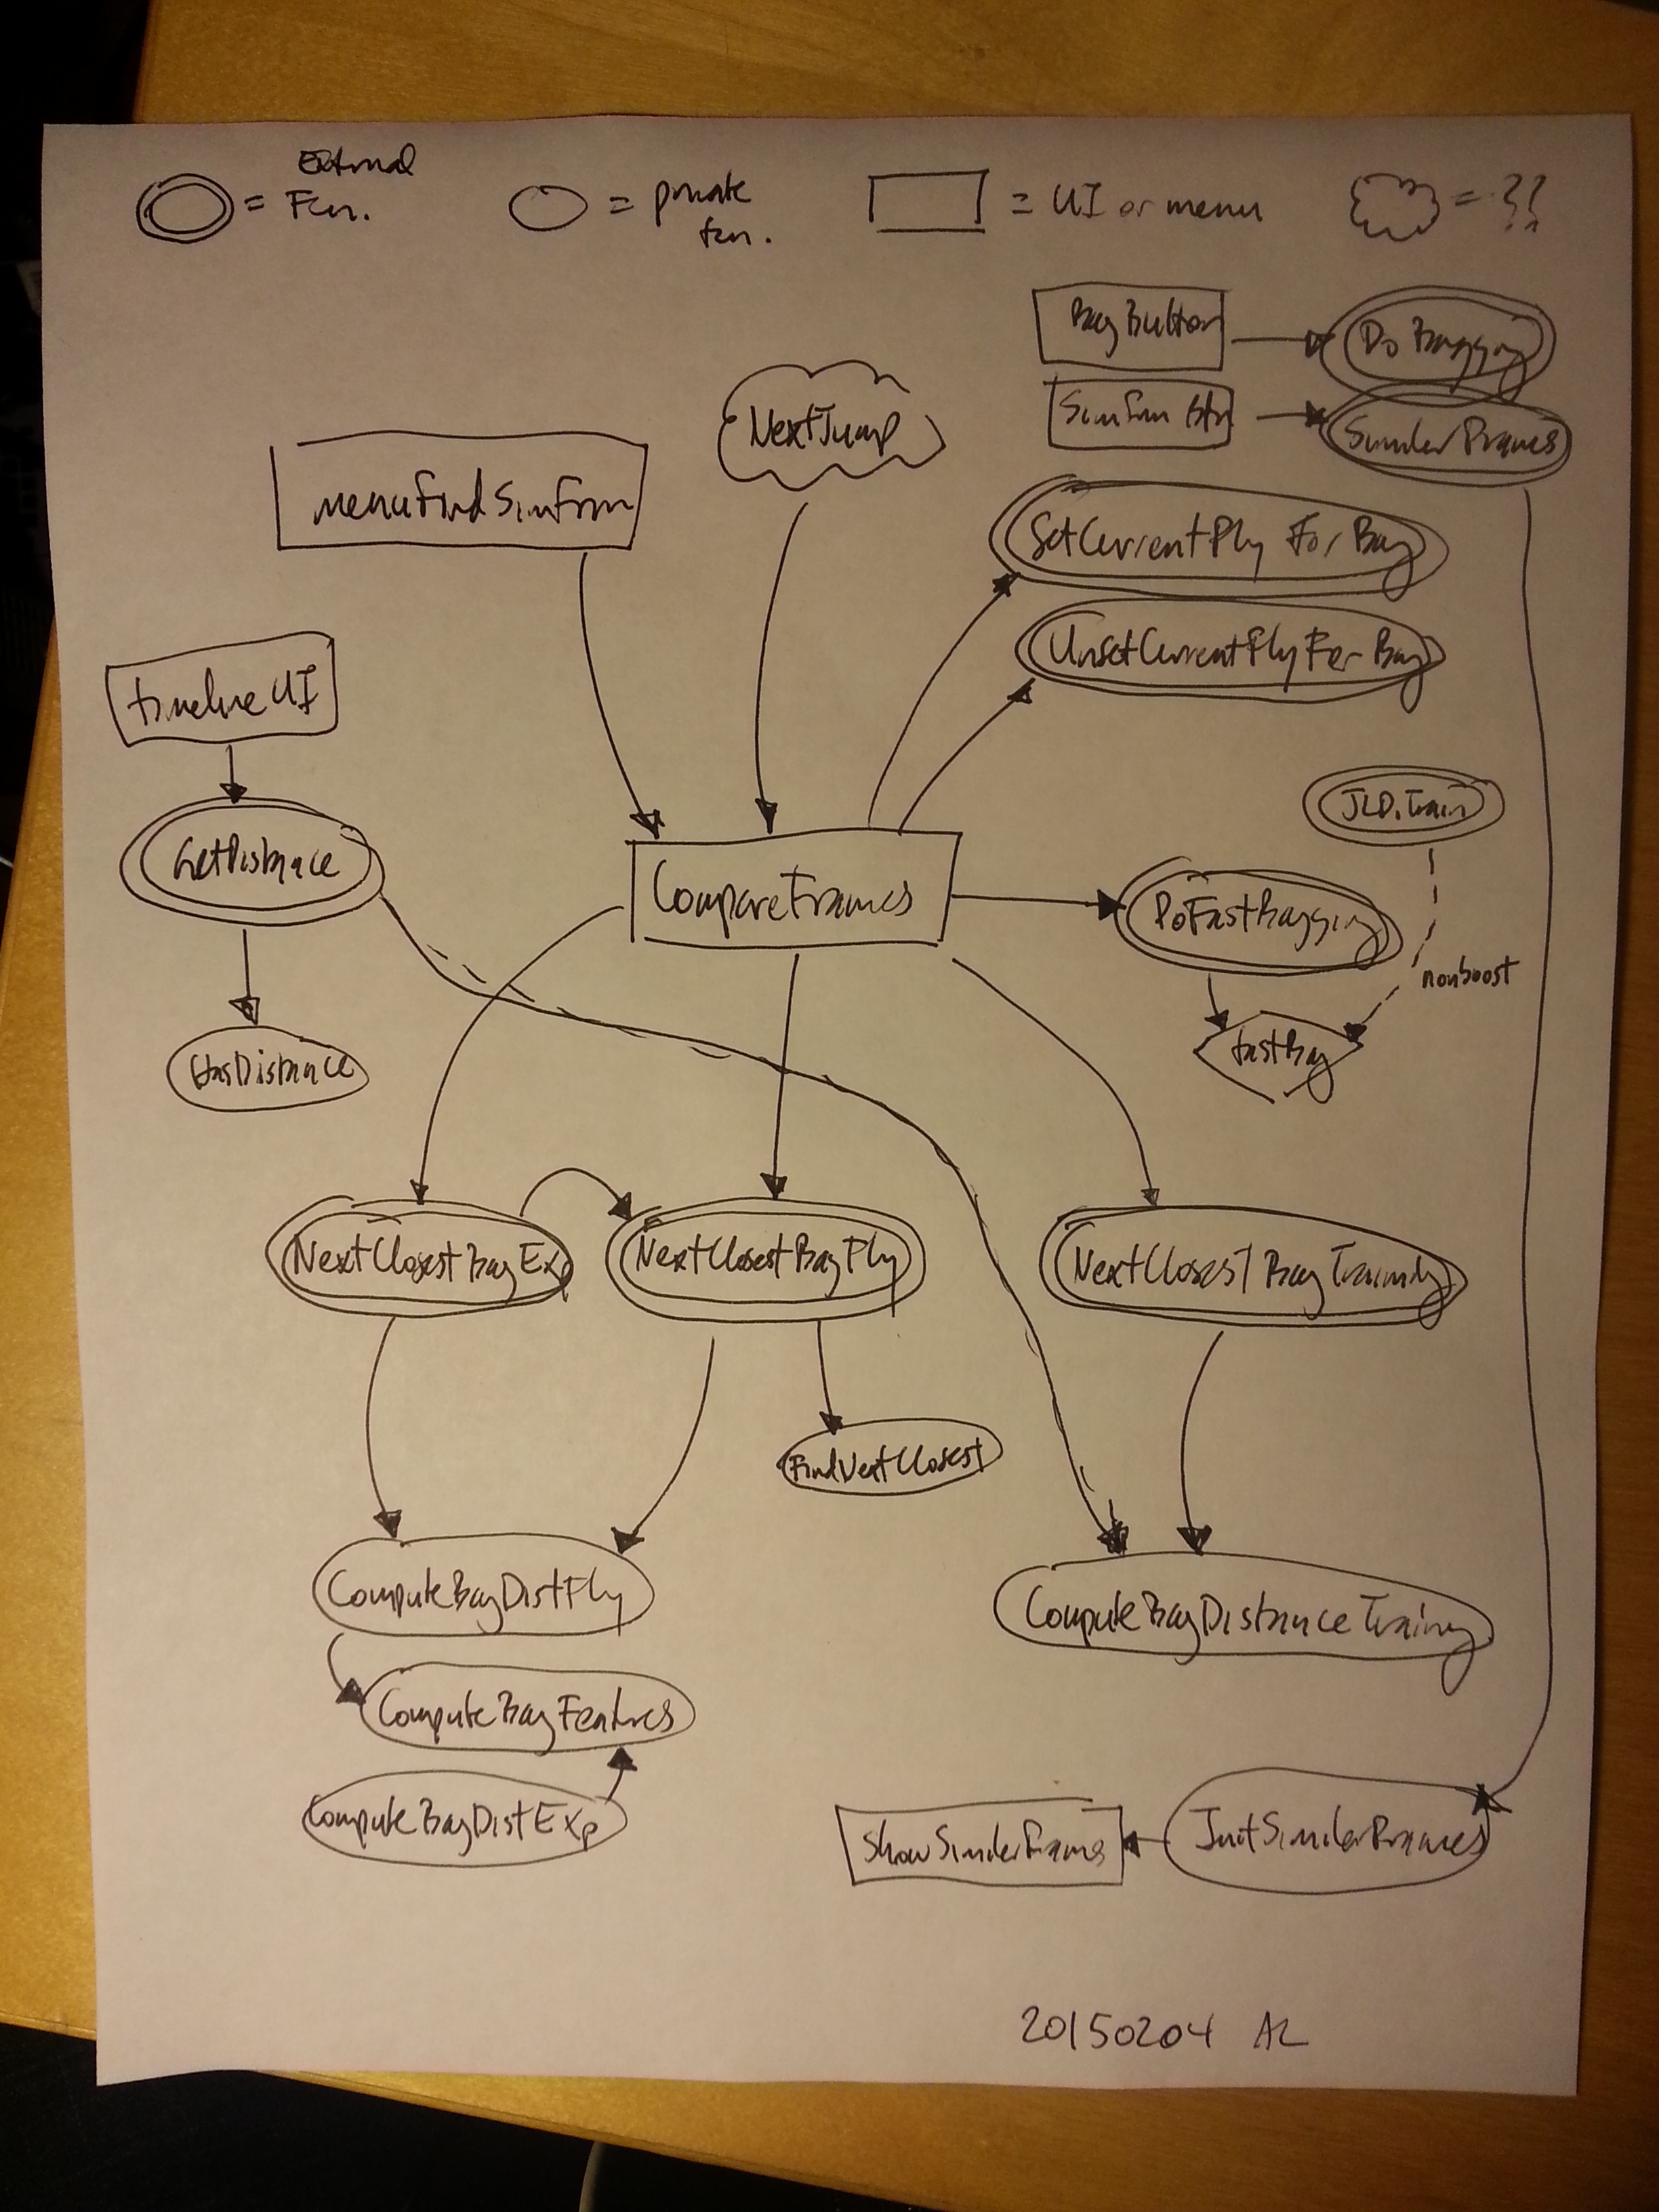 External
= Fcn.
= private
fcn.
= UI or menu
= ??
BagButton
DoBagging
SimFrm Btn
SimilarFrames
NextJump
menuFindSimFrm
SetCurrentFly For Bag
UnsetCurrentFlyFor Bag
timelineUI
JLD.Train
GetDistance
CompareFrames
DoFastBagging
nonboost
fastBag
HasDistance
NextClosestBagExp
NextClosestBagFly
NextClosestBagTraining
FindNextClosest
ComputeBagDistFly
ComputeBagDistanceTraining
ComputeBagFeatures
ComputeBagDistExp
ShowSimilarFrames
InitSimilarFrames
20150204 AL